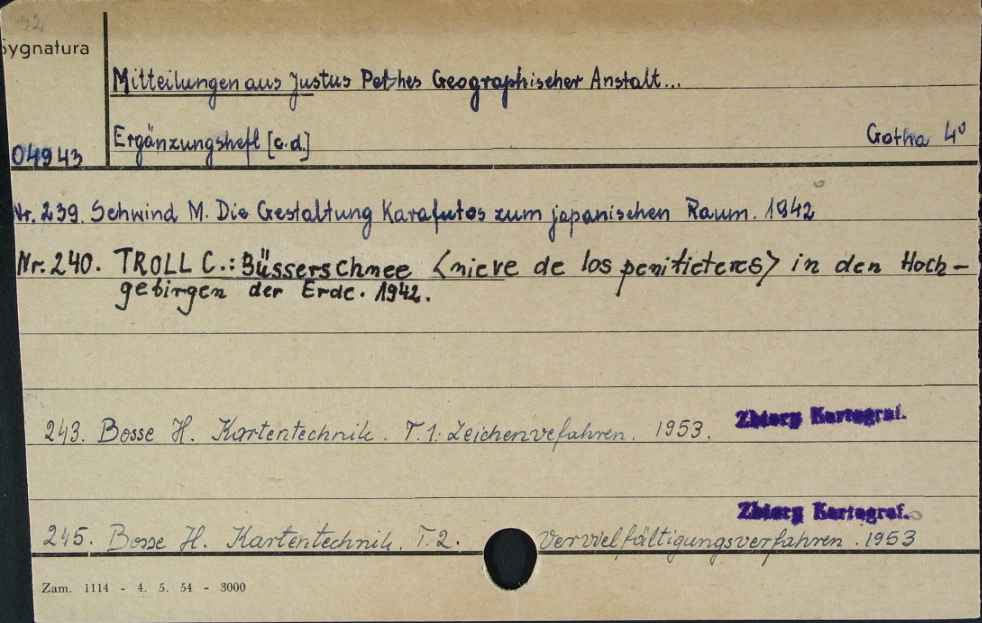 42
Sygnatura
Mitteilungen aus Justus Perthes Geographischer Anstalt...
04943
Ergänzungsheft [c.d.]
Gotha 4°
Nr. 239. Schwind M. Die Gestaltung Karafutos zum japanischen Raum. 1942
Nr. 240. TROLL C.: Büsserschnee <nieve de los penitieteres> in den Hoch-
gebirgen der Erde. 1942.
243. Bosse H. Kartentechnik. T.1. Zeichenvefahren. 1953. Zbiory Kartograf.
Zbiory Kartograf.
245. Bosse H. Kartentechnik. T.2. Vervielfältigungsverfahren. 1953
Zam. 1114 - 4. 5. 54 - 3000